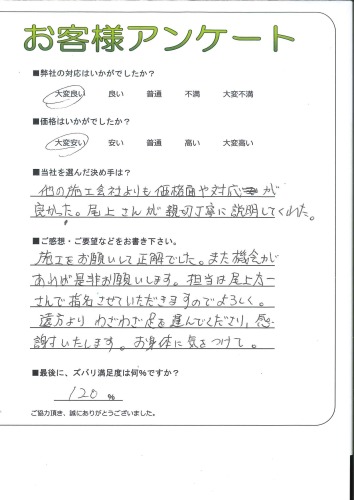 お客様アンケート
■弊社の対応はいかがでしたか?
大変良い 良い 普通 不満 大変不満
■価格はいかがでしたか?
大変安い 安い 普通 高い 大変高い
■当社を選んだ決め手は?
他の施工会社よりも価格面や対応が
良かった。尾上さんが親切丁寧に説明してくれた。
■ご感想・ご要望などをお書き下さい。
施工をお願いして正解でした。また機会が
あれば是非お願いします。担当は尾上方一
さんで指名させていただきますのでよろしく。
遠方よりわざわざ足を運んでくださり、感
謝いたします。お身体に気をつけて。
■最後に、ズバリ満足度は何%ですか?
120 %
ご協力頂き、誠にありがとうございました。